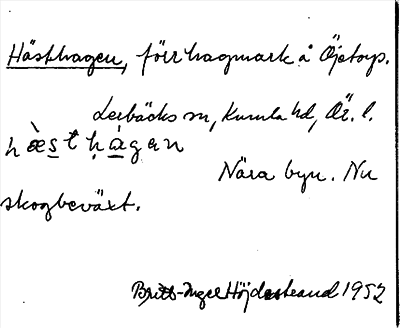 Hästhagen, förr hagmark å Öjetorp.
Lerbäcks sn, Kumla hd, Ör. l.
hæ̀st hàgan
Nära byn. Nu
skogbeväxt.
Britt-Inger Höjdestrand 1952